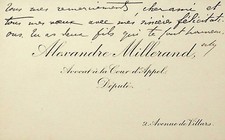 tous mes remerciements, cher ami et
tous mes vœux avec mes sincères félicitat.
ou les deux fils qui te font
Alexandre Millerand,
Avocat à la Cour d'Appel,
Député.
2, Avenue de Villars.